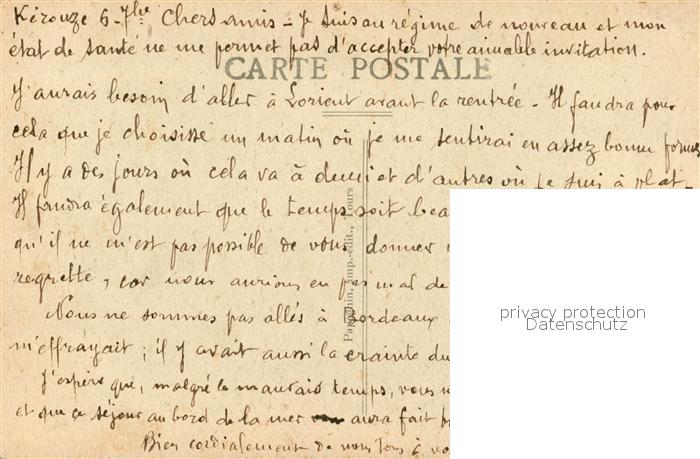 Kérouze 6-7bre Chers amis - Je suis au régime de nouveau et mon
état de santé ne me permet pas d'accepter votre aimable invitation.
CARTE POSTALE
J'aurais besoin d'aller à Lorient avant la rentrée - Il faudra pour
cela que je choisisse un matin où je me sentirai en assez bonne forme
Il y a des jours où cela va à demi et d'autres où je suis à plat -
Il faudra également que le temps soit beau
qu'il ne m'est pas possible de vous donner
regrette, car nous aurions eu pas mal de
Nous ne sommes pas allés à Bordeaux
m'effrayait ; il y avait aussi la crainte du
J'espère que, malgré le mauvais temps, vous
et que ce séjour au bord de la mer aura fait
Bien cordialement de nous tous à
imp.-édit., Tours
privacy protection
Datenschutz